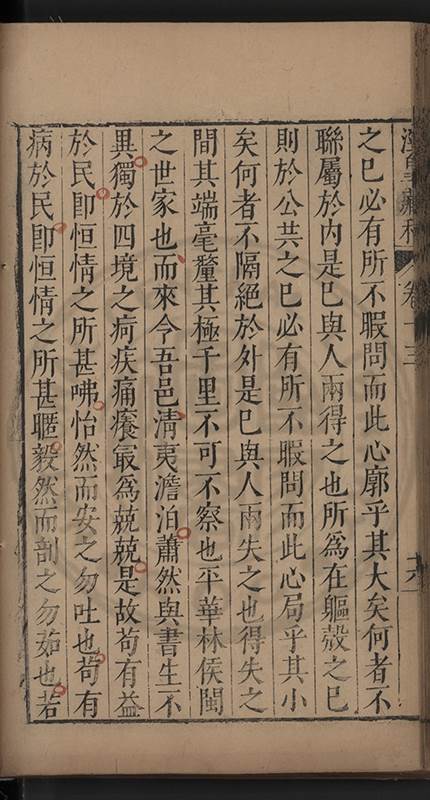 涇臯藏稿 卷十三 十六
之已必有所不暇問而此心廓乎其大矣何者不
聯屬於內是已與人兩得之也所爲在軀殻之已
則於公共之已必有所不暇問而此心局乎其小
矣何者不隔絕於外是已與人兩失之也得失之
間其端毫釐其極千里不可不察也平華林侯閩
之世家也而來令吾邑淸夷澹泊蕭然與書生不
異獨於四境之疴疾痛癢最爲兢兢是故苟有益
於民卽恒情之所甚咈怡然而安之勿吐也苟有
病於民卽恒情之所甚暱毅然而剖之勿茹也若